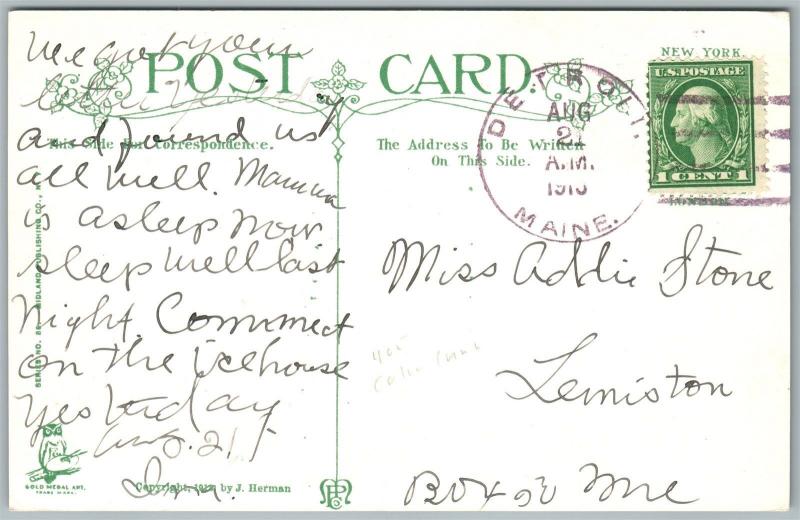 POST CARD.
NEW YORK.
U.S. POSTAGE
1 CENT 1
This Side For Correspondence.
The Address To Be Written
On This Side.
DETROIT.
AUG
21
A.M.
MAINE.
We got your
and found us
all well. Mamma
is asleep now
sleep well last
night. Commnect
on the icehouse
yesterday
Aug. 21
Miss Addie Stone
Lewiston
Box Me
SERIES NO. MIDLAND PUBLISHING CO.,
GOLD MEDAL ART.
TRADE MARK.
Copyright, by J. Herman